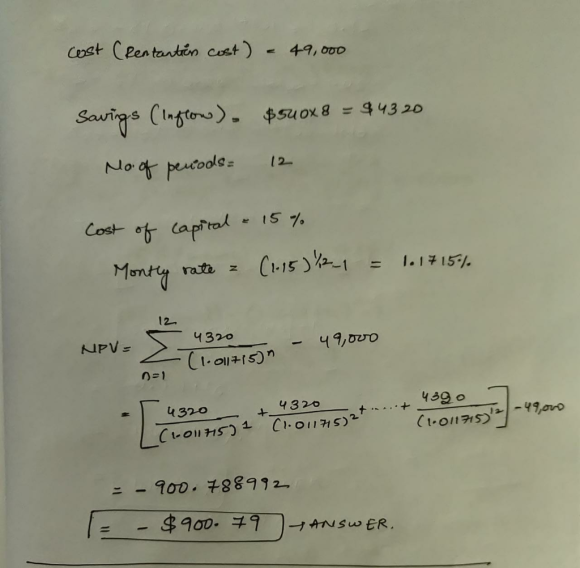 Cost (Rentantion cost) = 49,000
Savings (Inflow) = $540x8 = $4320
No. of periods = 12
Cost of Capital = 15 %
Montly rate = (1.15)^1/12 -1 = 1.1715%
12
NPV = ∑ 4320 / (1.011715)^n - 49,000
n=1
= [ 4320 / (1.011715)^1 + 4320 / (1.011715)^2 + ..... + 4320 / (1.011715)^12 ] - 49,000
= - 900.788992
= - $900.79 → ANSWER.